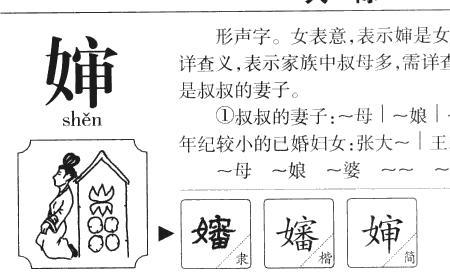 婶
shěn
形声字。女表意，表示婶是女
详查义，表示家族中叔母多，需详查
是叔叔的妻子。
①叔叔的妻子：～母｜～娘｜
年纪较小的已婚妇女：张大～｜王
～母 ～娘 ～婆 ～～ ～
嬸 隶
嬸 楷
婶 简